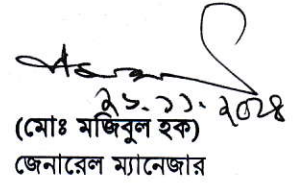 ২১.১১.২০২৪
(মোঃ মজিবুল হক)
জেনারেল ম্যানেজার